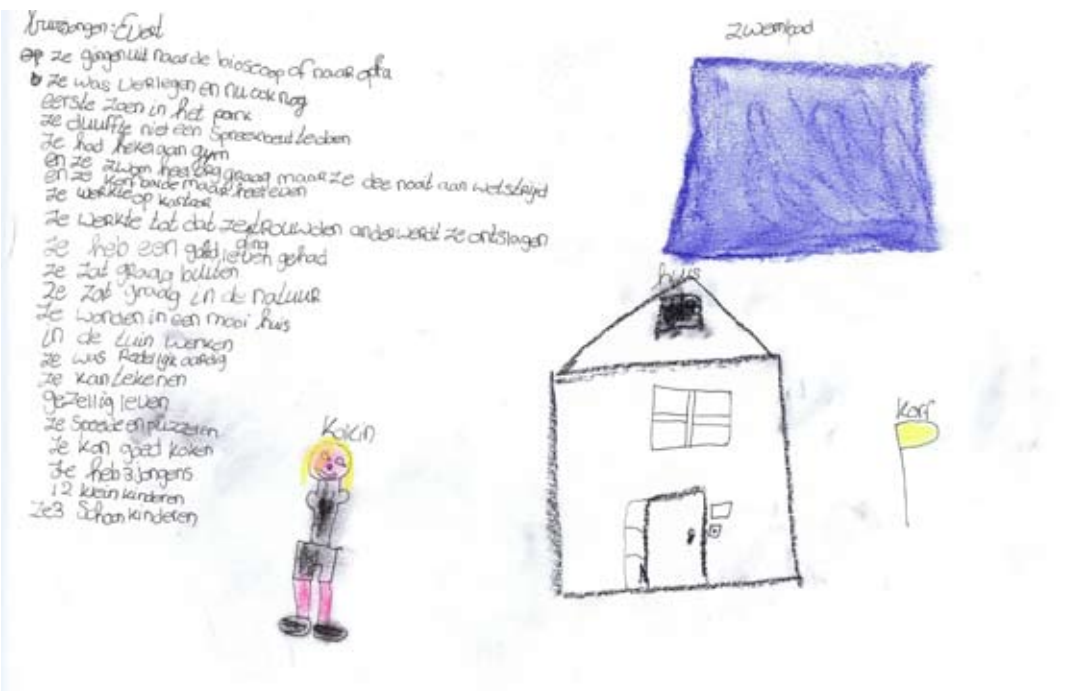 Evert
op ze gingen uit naar de bioscoop of naar
ze was verlegen en nu ook nog
eerste zoen in het park
ze duufte niet een Spreekbeurt te doen
Je had hekel aan gym
en ze zwom heel erg graag maar ze dee nooit aan wetstrijd
en ze maar heel even
ze werkte op kantoor
ze werkte tot dat ze ging trouwden anders werdt ze ontslagen
ze heb een goed leven gehad
ze zat graag buiten
ze zat graag in de natuur
Ze wonden in een mooi huis
in de tuin werken
ze was Redelijk aardig
ze kan tekenen
gezellig leven
ze en puzzelen
Ze kan goed koken
Ze heb 3 jongens
12 klein kinderen
ze 3 Schoon kinderen
zwembad
huis
korf
Kokin